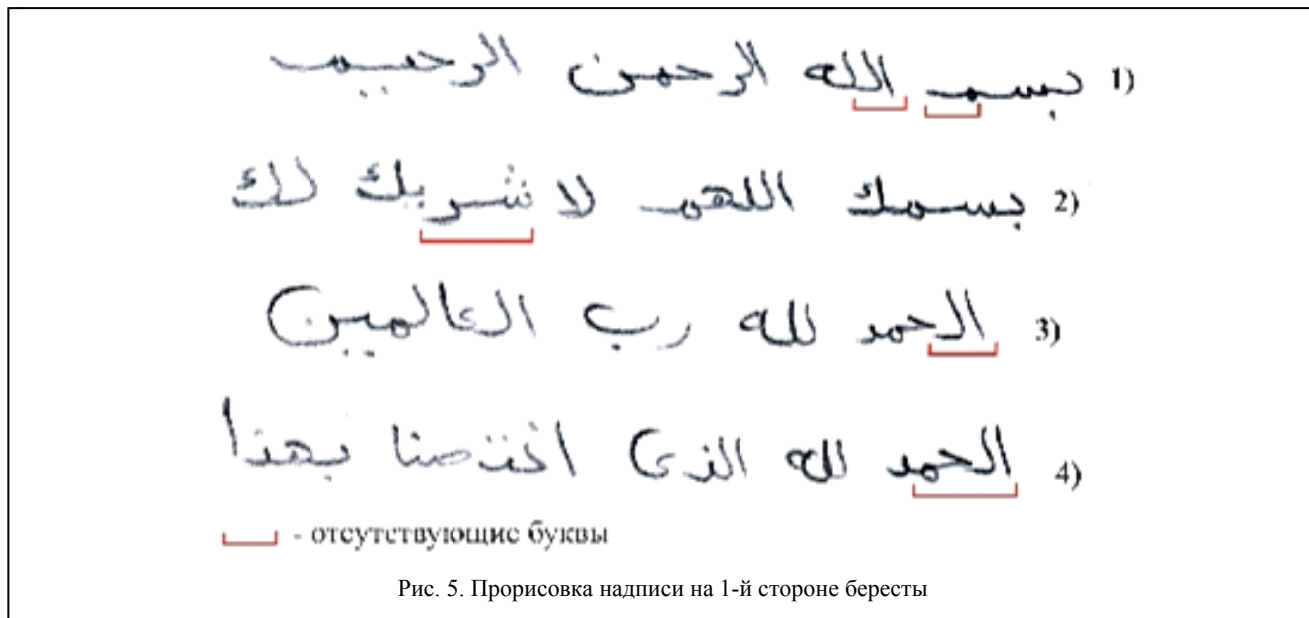 بسم الله الرحمن الرحيم (1
بسمك اللهم لا شريك لك (2
الحمد لله رب العالمين (3
الحمد لله الذى اختصنا بهذا (4
- отсутствующие буквы
Рис. 5. Прорисовка надписи на 1-й стороне бересты